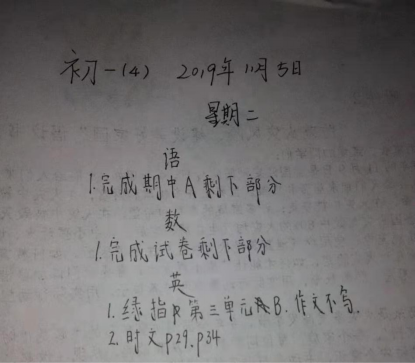 初一(4) 2019年11月5日
星期二
语
1.完成期中A剩下部分
数
1.完成试卷剩下部分
英
1.绿指第三单元B.作文不写.
2.时文p29.p34